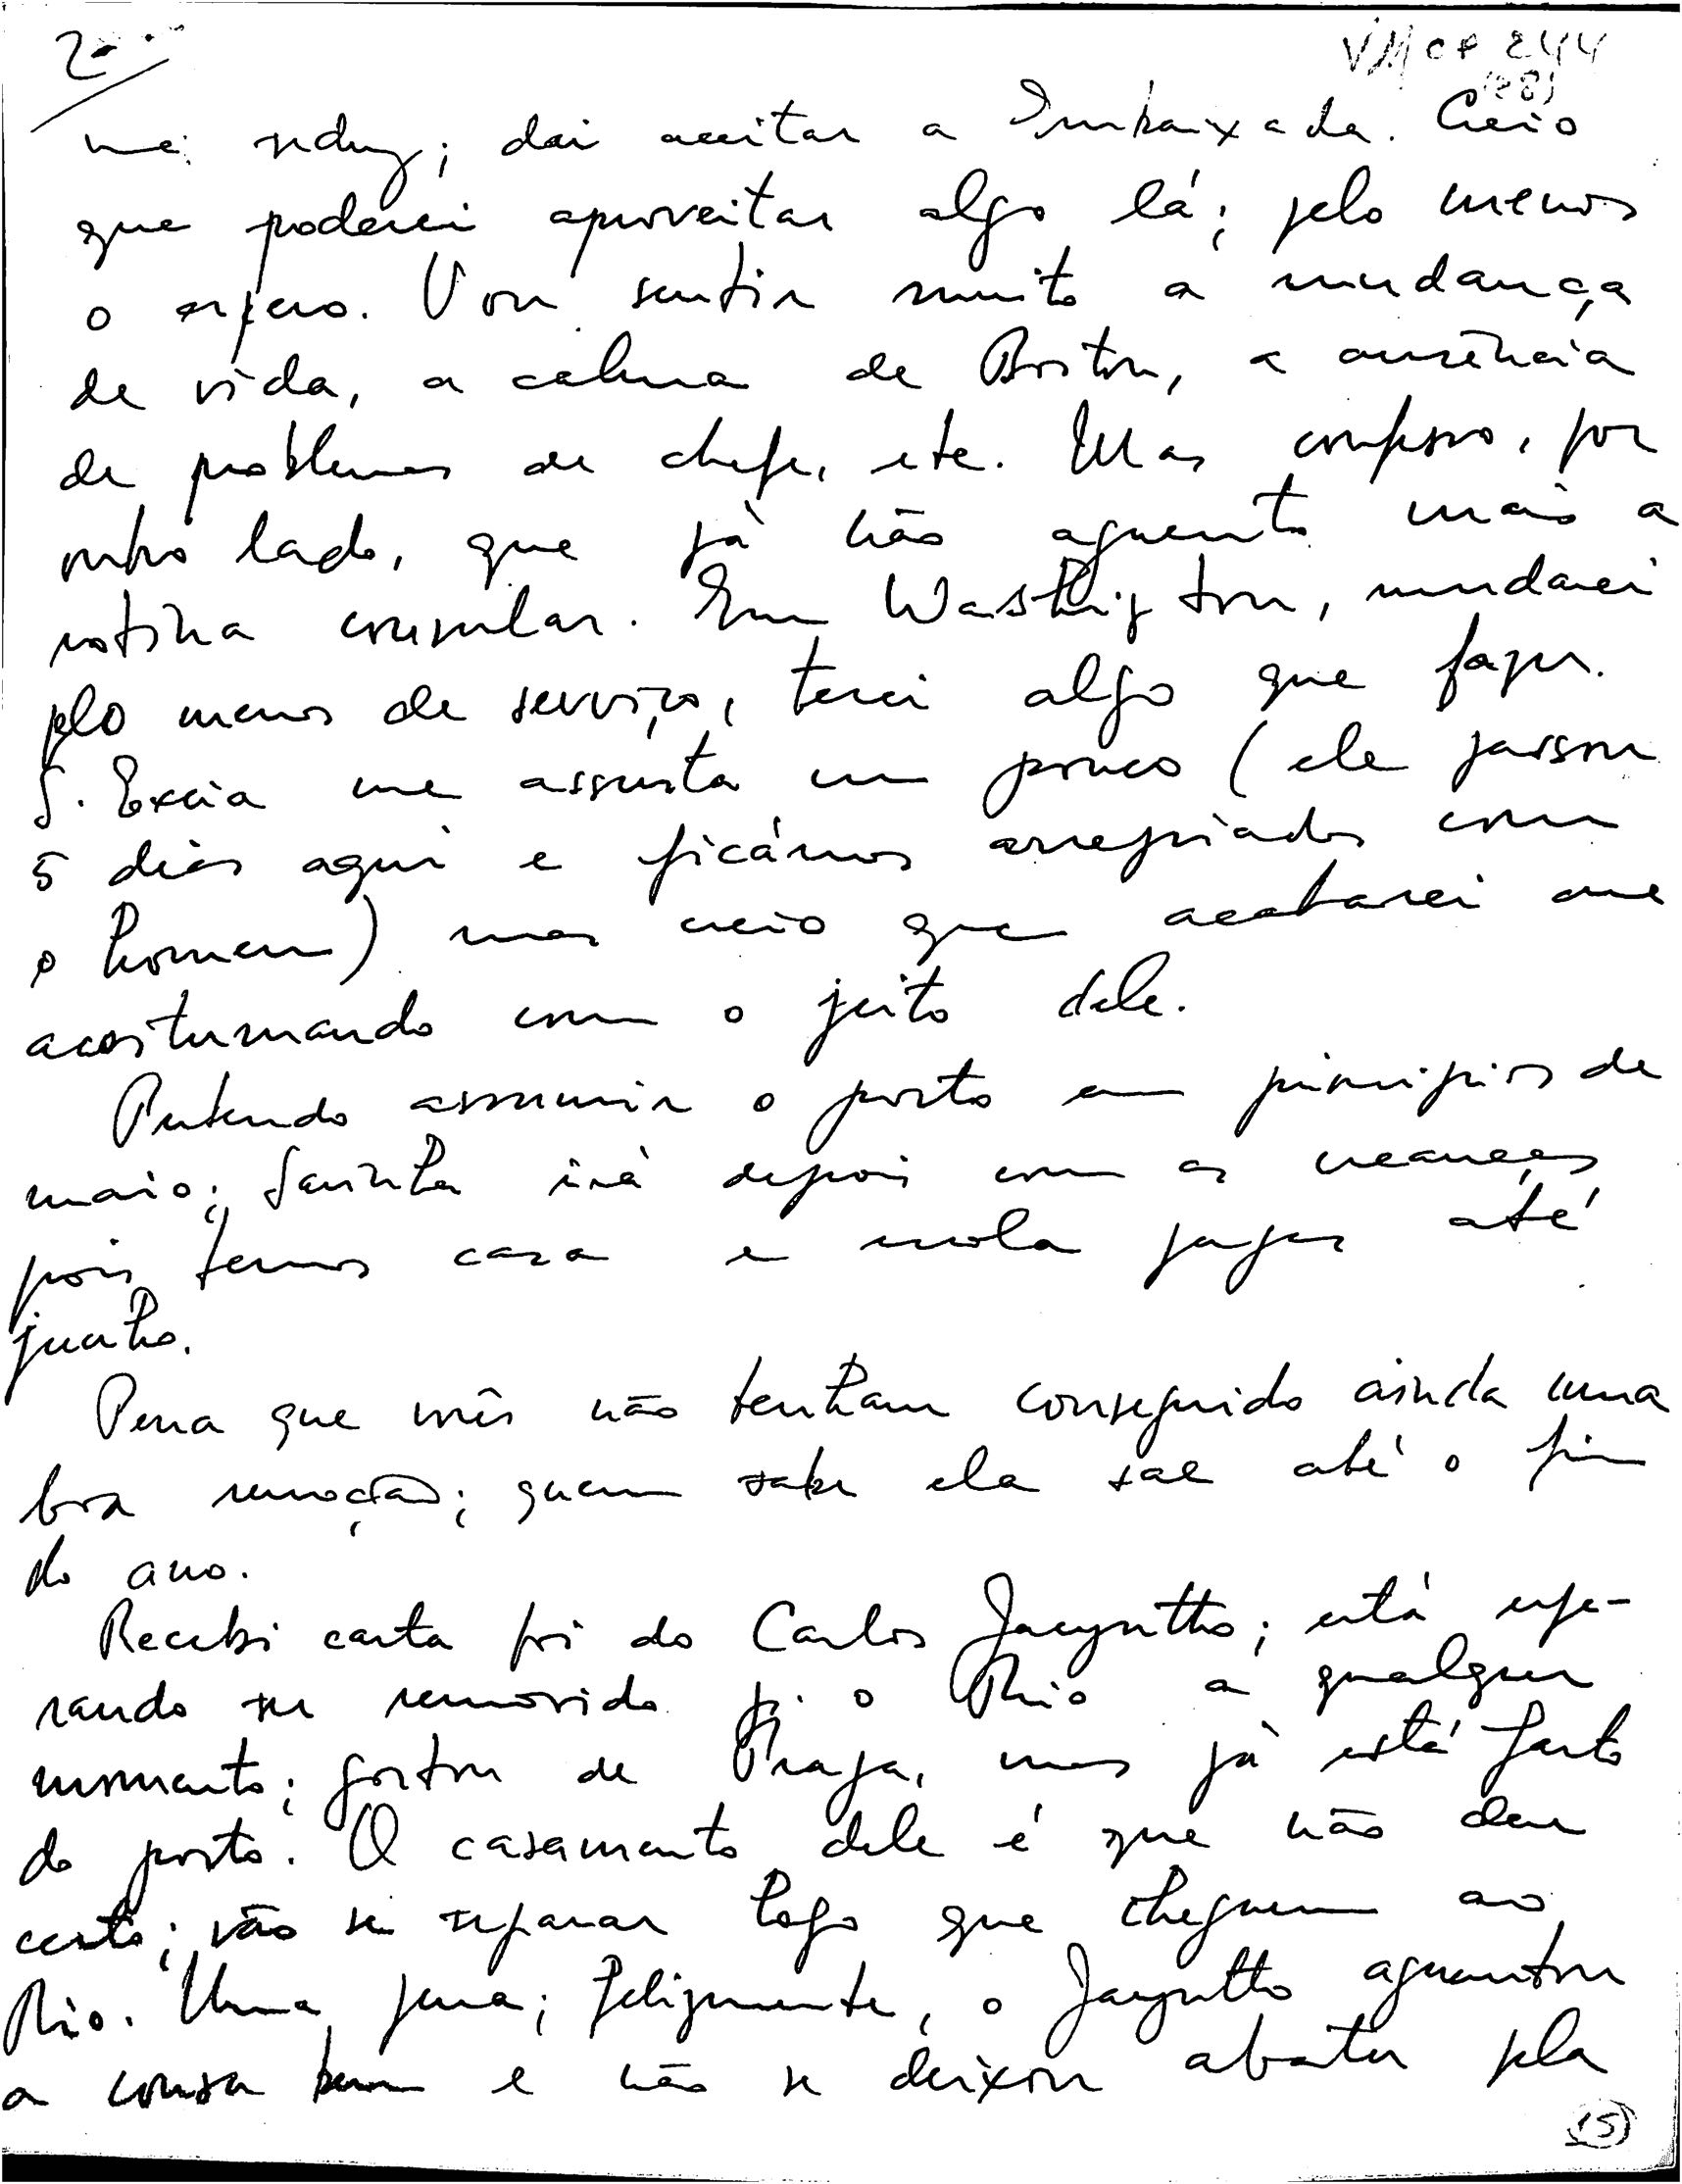 2
VM cp 244
(28)
me seduz; daí aceitar a Embaixada. Creio
que poderei aproveitar algo lá; pelo menos
o espero. Vou sentir muito a mudança
de vida, a calma de Boston, a ausência
de problemas de chefe, etc. Mas confesso, por
outro lado, que já não aguento mais a
rotina consular. Em Washington, mudarei
pelo menos de serviço, terei algo que fazer.
S. Excia me assusta um pouco (ele passou
5 dias aqui e ficámos arrepiados com
o homem) mas creio que acabarei me
acostumando com o jeito dele.
Pretendo assumir o posto em princípios de
maio; irá depois com as creanças
pois temos casa e escola pagas até
junho.
Pena que vocês não tenham conseguido ainda uma
boa remoção; quem sabe ela sae até o fim
do ano.
Recebi carta foi do Carlos Jacyntho; está espe-
rando ser removido p. o Rio a qualquer
momento; gostou de Praga, mas já está farto
do posto. O casamento dele é que não deu
certo; vão se separar logo que cheguem ao
Rio. Uma pena; felizmente, o Jacyntho aguentou
a cousa bem e não se deixou abater pela
15